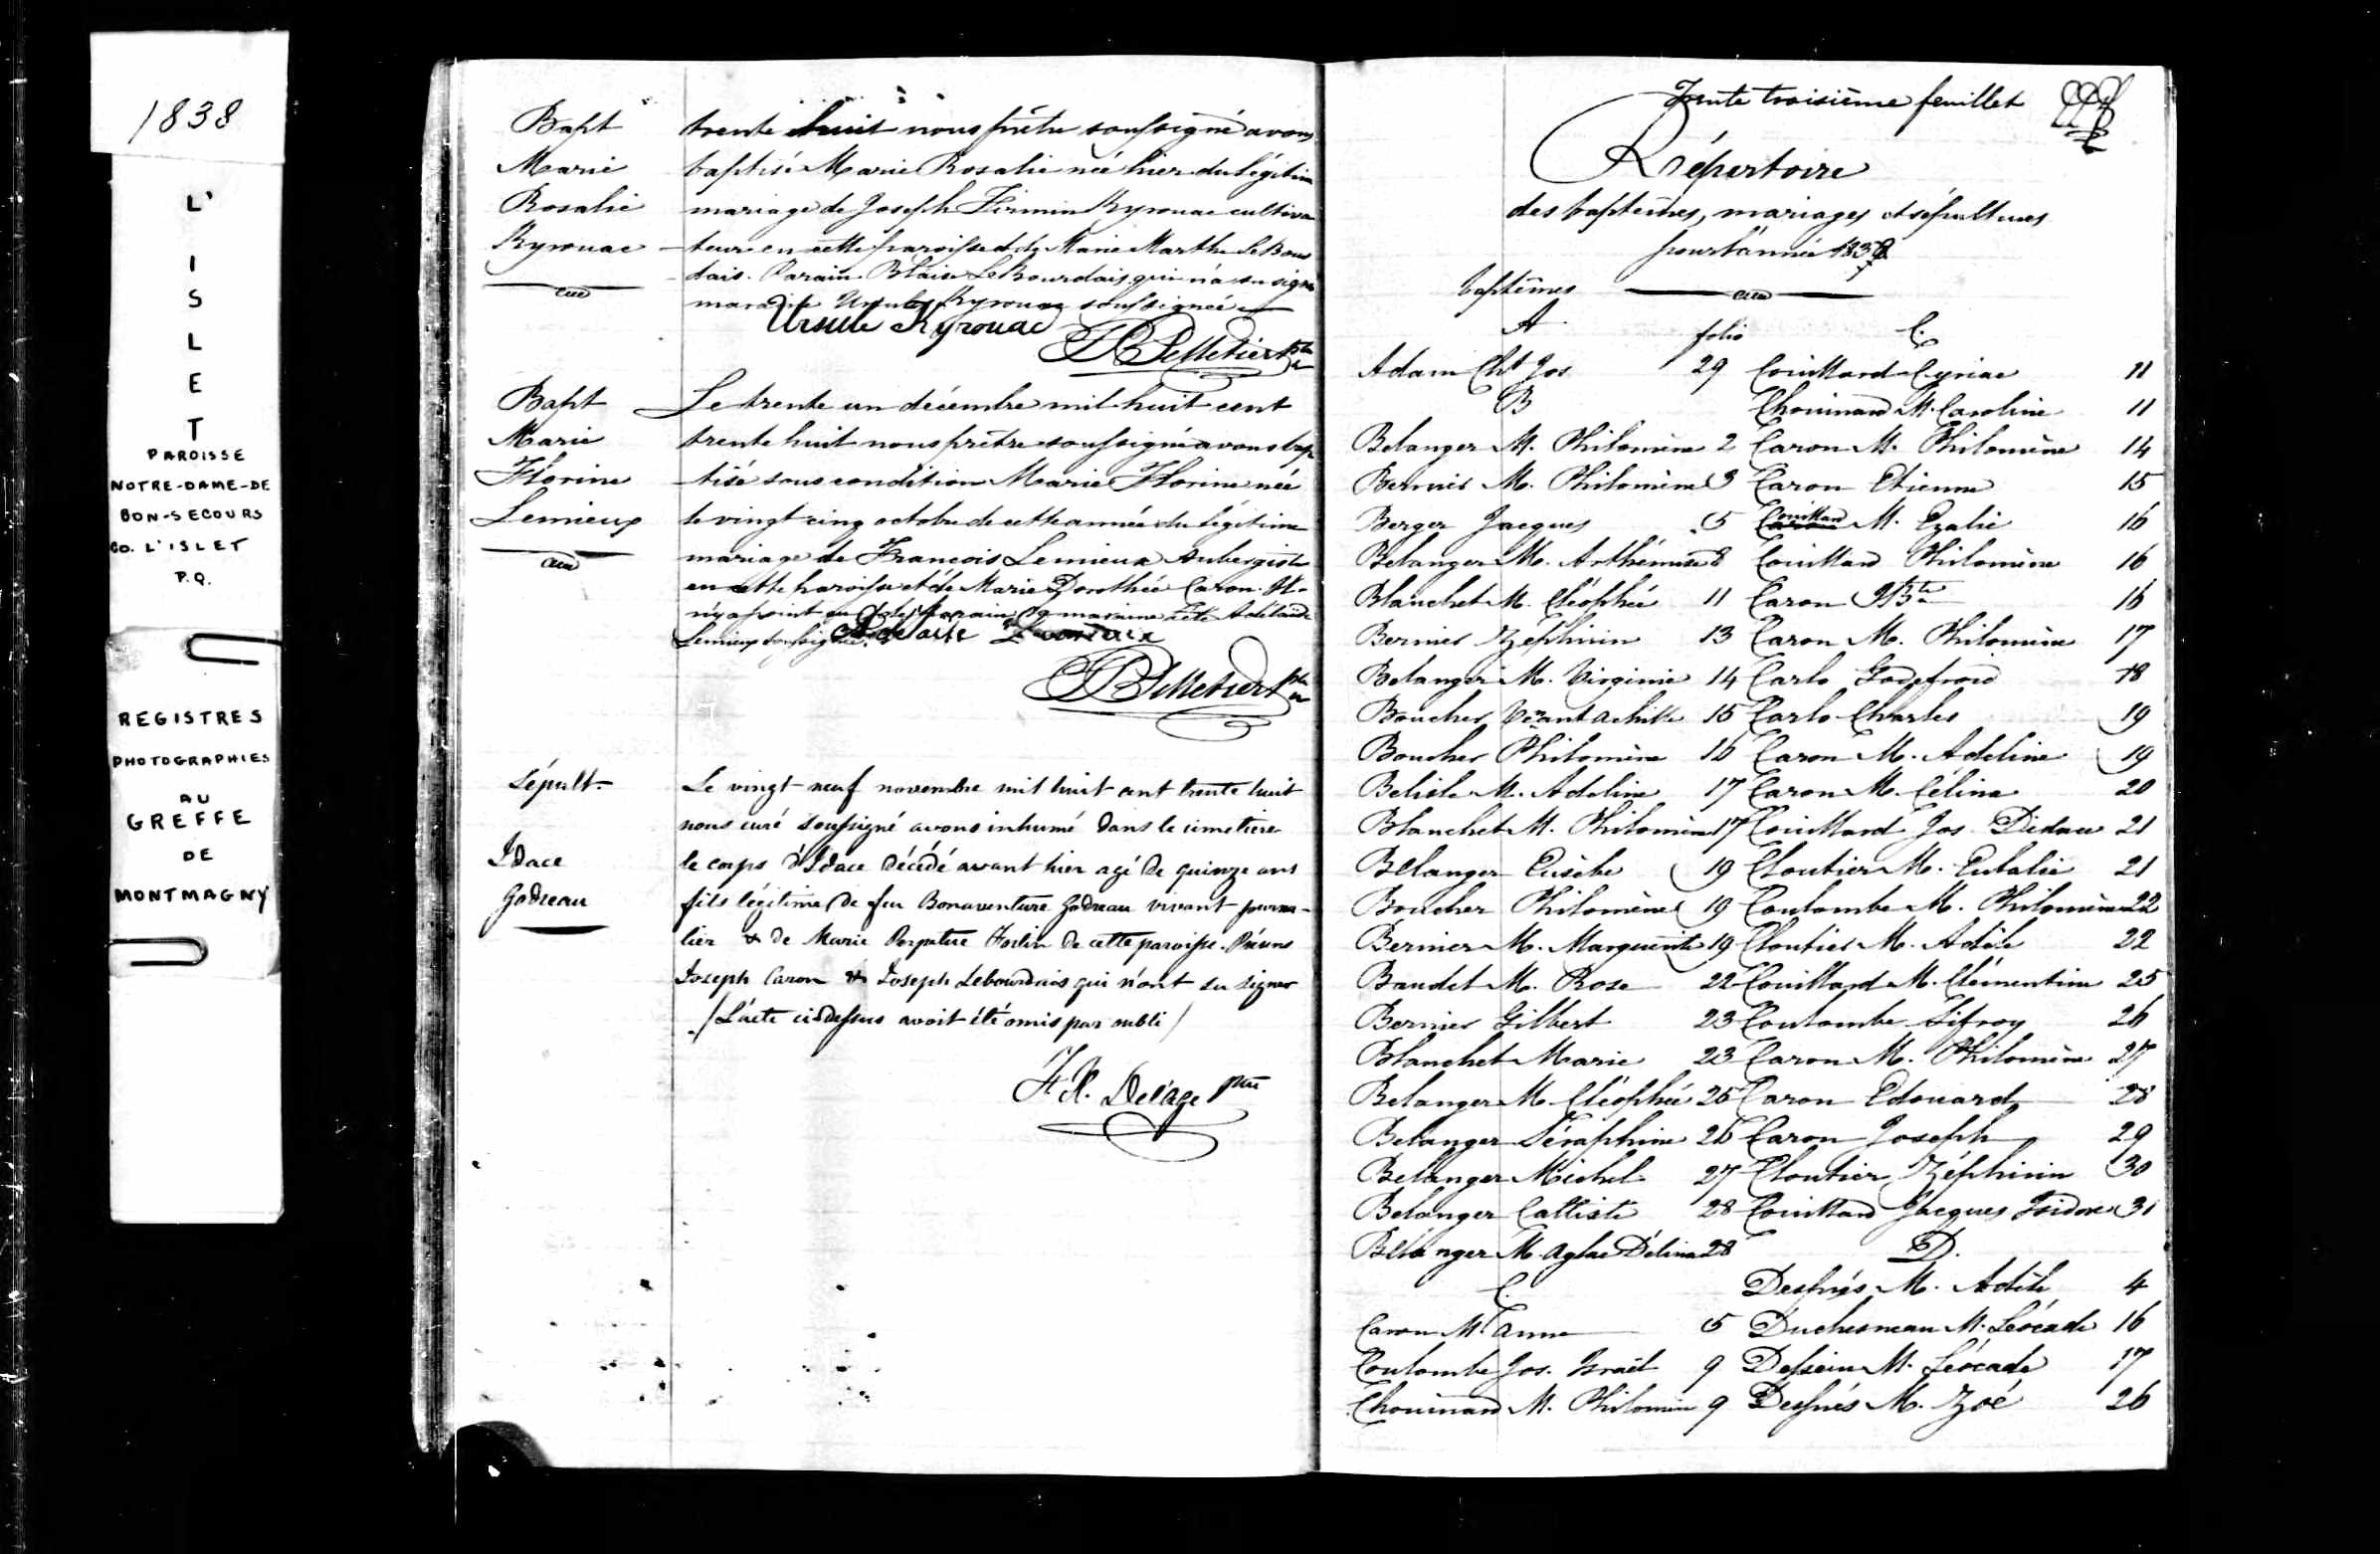 1838
L'
I
S
L
E
T
PAROISSE
NOTRE-DAME-DE
BON-SECOURS
CO. L'ISLET
P.Q.
REGISTRES
PHOTOGRAPHIES
AU
GREFFE
DE
MONTMAGNY
Bapt
Marie
Rosalie
Kyrouac
trente huit nous prêtre soussigné avons
baptisé Marie Rosalie née hier du légitim
mariage de Joseph Firmin Kyrouac cultiva
teur en cette paroisse et de Marie Marthe LeBour
dais. Parain Blaise LeBourdais qui n'a su signer
maraine Ursule Kyrouac soussignée
Ursule Kyrouac
Pelletier ptre
Bapt
Marie
Florine
Lemieux
Le trente un décembre mil huit cent
trente huit nous prêtre soussigné avons bap
tisé sous condition Marie Florine née
le vingt cinq octobre de cette année du légitime
mariage de François Lemieux Aubergiste
en cette paroisse et de Marie Dorothée Caron. Il
n'y a point eu de parain maraine Adélaide
Lemieux soussignée.
Pelletier ptre
Sépult.
Idace
Godreau
Le vingt neuf novembre mil huit cent trente huit
nous curé soussigné avons inhumé dans le cimetiere
le corps d'Idace décédé avant hier agé de quinze ans
fils légitime de feu Bonaventure Godreau vivant journa-
lier & de Marie Perpetue Fortin de cette paroisse. Présens
Joseph Caron & Joseph Lebourdais qui n'ont su signer
/ L'acte ci dessus avoit été omis par oubli /
F. X. Delâge ptre
Trente troisième feuillet
Répertoire
des baptêmes, mariages et sépultures
pour l'année 1838
baptêmes
A folio C.
Adam Chs Jos 29 Couillard Cyriac 11
B Chouinard M. Caroline 11
Belanger M. Philomène 2 Caron M. Philomène 14
Bernier M. Philomène 3 Caron Etienne 15
Berger Jacques 5 Couillard M. Ezalie 16
Belanger M. Arthémise 8 Couillard Philomène 16
Blanchet M. Cléophée 11 Caron J Bte 16
Bernier Zéphirin 13 Caron M. Philomène 17
Belanger M. Virginie 14 Carlo Godefroid 18
Boucher Achille 15 Carlo Charles 19
Boucher Philomène 16 Caron M. Adeline 19
Belisle M. Adeline 17 Caron M. Célina 20
Blanchet M. Philomène 17 Couillard Jos. Didace 21
Bélanger Eusèbe 19 Cloutier M. Eulalie 21
Boucher Philomène 19 Coulombe M. Philomène 22
Bernier M. Marguerite 19 Cloutier M. Adèle 22
Baudet M. Rose 22 Couillard M. Clémentine 25
Bernier Gilbert 23 Coulombe Sifroy 26
Blanchet Marie 23 Caron M. Philomène 27
Belanger M. Cléophée 25 Caron Edouard 28
Belanger Séraphine 26 Caron Joseph 29
Belanger Michel 27 Cloutier Zéphirin 30
Belanger Calliste 28 Couillard Jacques Isidore 31
Bélanger M. Aglaé Délina 28 D.
C. Després M. Adèle 4
Caron M. Anne 5 Duchesneau M. Léocade 16
Coulombe Jos. Israël 9 Dessein M. Léocade 17
Chouinard M. Philomène 9 Després M. Zoé 26